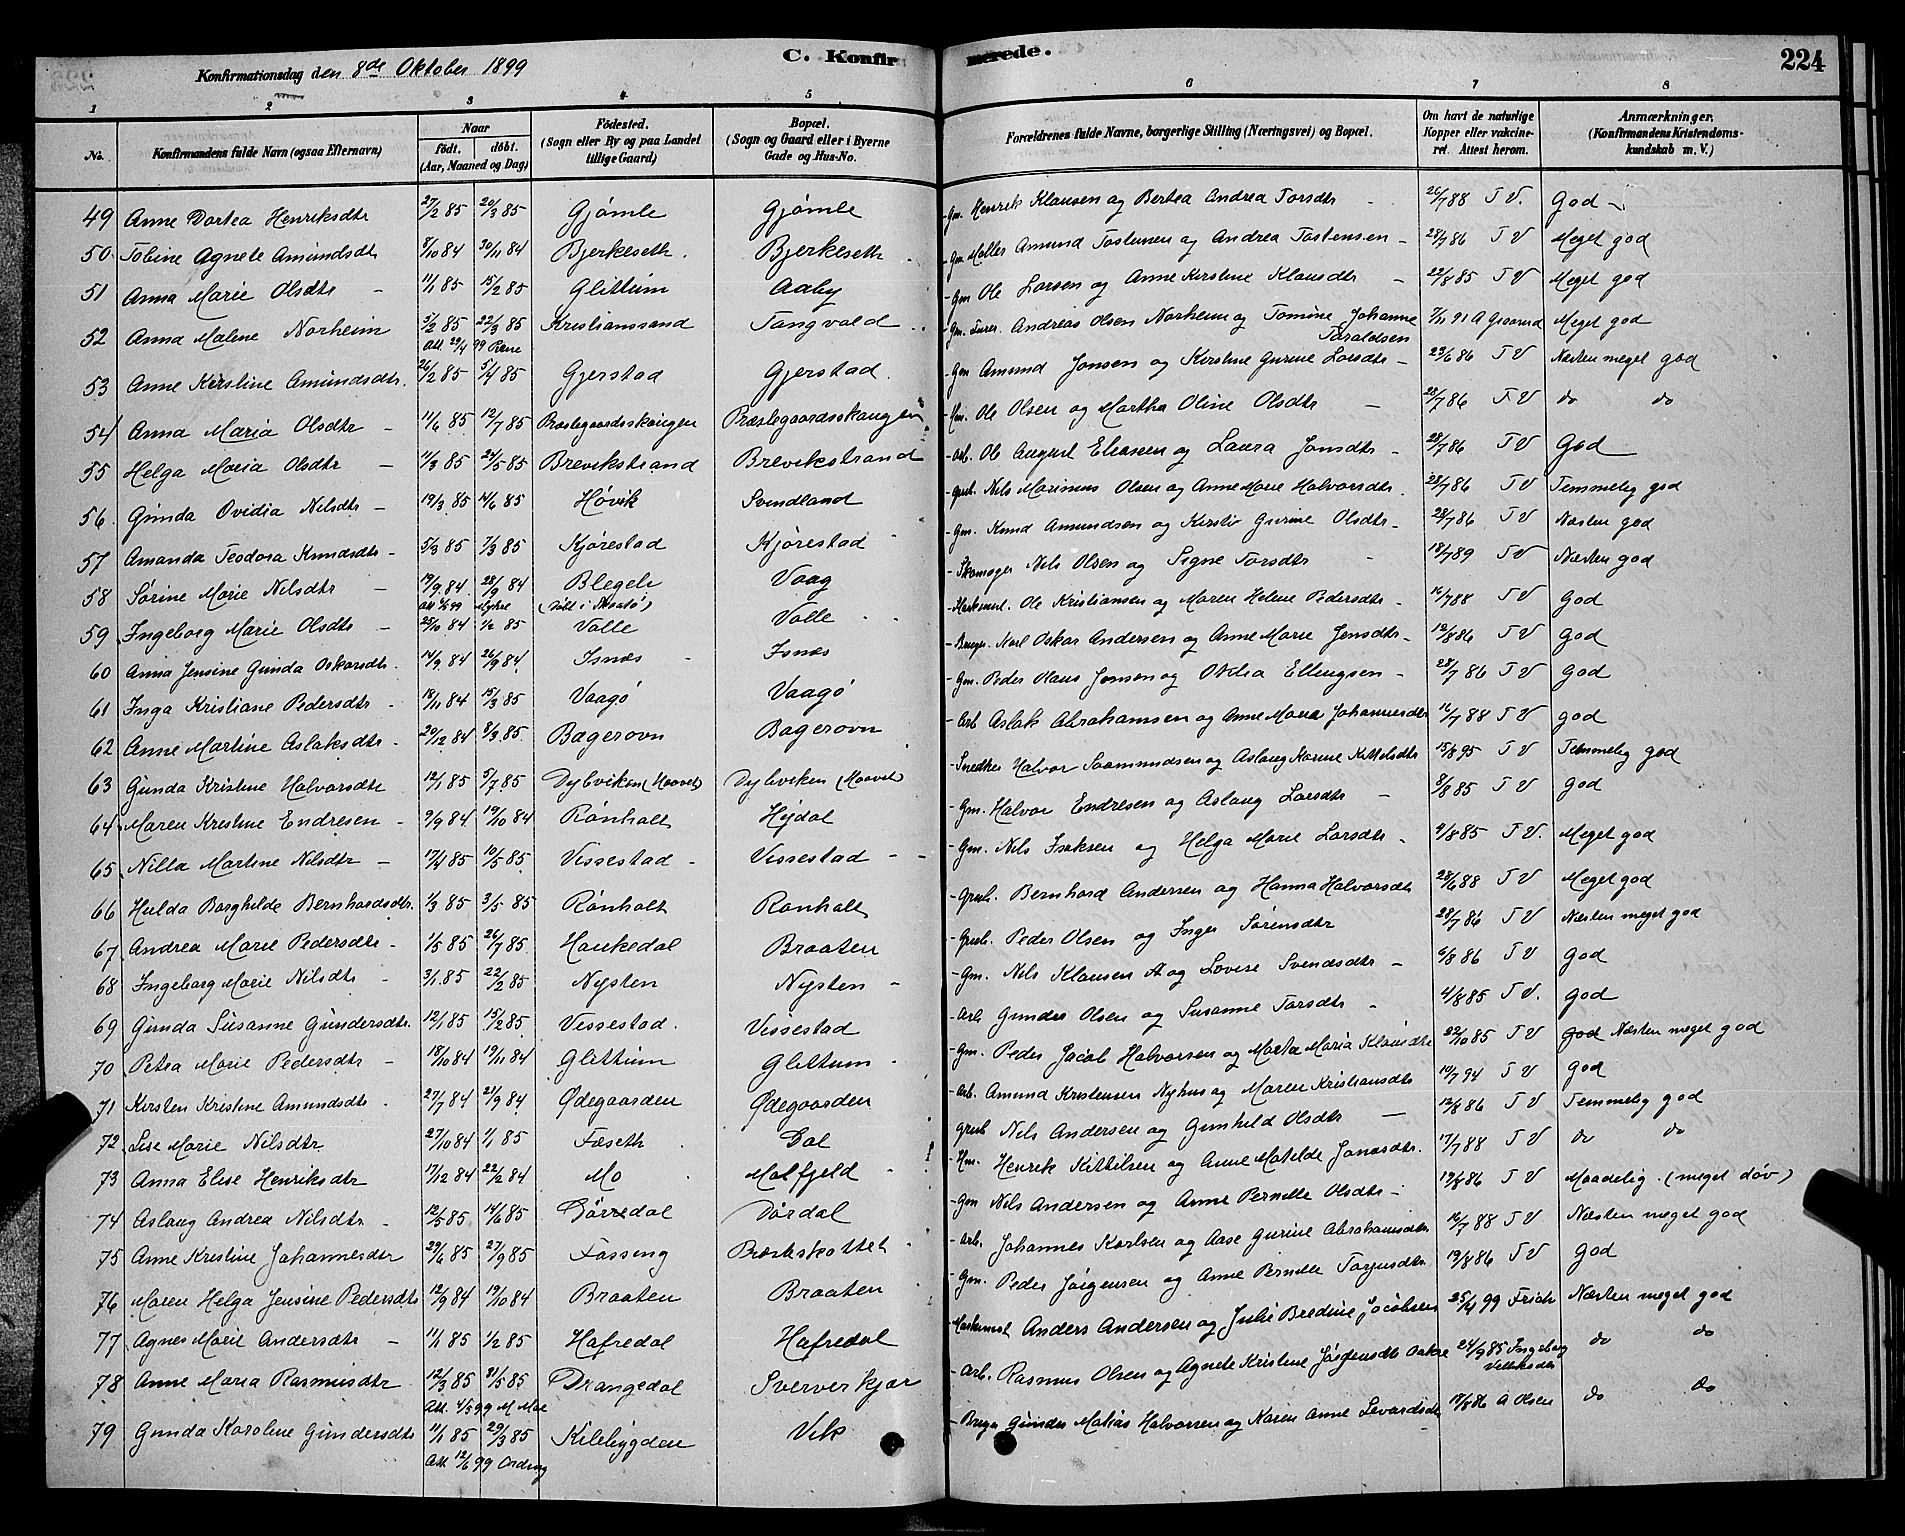 C. Konfirmerede.
224
Konfirmationsdag den 8de Oktober 1899
1 2 3 4 5 6 7 8
No. Konfirmandens fulde Navn (ogsaa Efternavn) Naar født. døbt. (Aar, Maaned og Dag) Fødested. (Sogn eller By og paa Landet tillige Gaard) Bopæl. (Sogn og Gaard eller i Byerne Gade og Hus-No. Forældrenes fulde Navne, borgerlige Stilling (Næringsvei) og Bopæl. Om havt de naturlige Kopper eller vakcineret. Attest herom. Anmærkninger. (Konfirmandens Kristendomskundskab m. V.)
49 Anne Dortea Henriksdtr 27/2 85 20/3 85 Gjömle Gjömle - Gm. Henrik Klausen og Bertea Andrea Torsdtr - 26/7 88 T V. God -
50 Tobine Agnete Amundsdtr 8/10 84 30/11 84 Bjerkeseth Bjerkeseth - Gm Møller Amund Tostensen og Andrea Tostensen - 28/7 86 T V Meget god
51 Anna Marie Olsdtr - 11/1 85 15/2 85 Glittum Aaby - Gm Ole Larsen og Anne Kirstine Klausdtr - 22/8 85 T V Meget god
52 Anna Malene Norheim 5/2 85 22/3 85 Kristianssand Tangvald - Gm. Andreas Olsen Norheim og Tomine Johanne Taraldsen 7/11 91 Meget god
Att. 29/4 99
53 Anne Kirstine Amundsdtr. 26/2 85 5/4 85 Gjerstad Gjerstad - Gm Amund Jonsen og Kirstine Gurine Larsdtr - 23/6 86 T V Næsten meget god
54 Anna Maria Olsdtr - 11/6 85 12/7 85 Præstegaardsskougen Præstegaardsskougen - Hm. Ole Olsen og Martha Oline Olsdtr - 28/7 86 T V do do
55 Helga Maria Olsdtr - 11/3 85 24/5 85 Brevikstrand Brevikstrand - Arb. Ole August Eliassen og Laura Jonsdtr - 28/7 86 T V God
56. Gunda Ovidia Nilsdtr - 19/3 85 14/6 85 Høvik Svendland - Grub. Nils Marinius Olsen og Anne Marie Halvorsdtr. 28/7 86 T V Temmelig god
57 Amanda Teodora Knudsdtr - 5/3 85 7/3 85 Kjørestad Kjørestad - Gm. Knud Amundsen og Kirsti Gurine Olsdtr - 28/7 86 T V Næsten god
58 Sørine Marie Nilsdtr - 19/9 84 28/9 84 Blegeli Vaag - Skomager Nils Olsen og Signe Torsdtr - 18/7 89 T V Næsten god
59 Ingeborg Marie Olsdtr - 25/10 84 1/2 85 Valle Valle - Ole Kristiansen og Maren Helene Pedersdtr - 16/7 88 T V God
60 Anna Jensine Gunda Oskarsdtr. 14/9 84 26/9 84 Isnæs Isnæs - Karl Oskar Andersen og Anne Marie Jensdtr - 12/8 86 T V God
61 Inga Kristiane Pedersdtr - 18/11 84 15/3 85 Vaagø Vaagø - Gm. Peder Hans Jonsen og Otilia Ellingsen - 28/7 86 T V God
62 Anne Martine Aslaksdtr - 20/12 84 8/3 85. Bagerovn Bagerovn - Arb Aslak Abrahamsen og Anne Maria Johannesdtr 16/7 88 T V god
63 Gunda Kristine Halvorsdtr 12/1 85 5/7 85 Dybviken (Haavet) Dybviken (Haavet) - Snedker Halvor Saamundsen og Aslaug Karine Kittelsdtr 15/8 95 T V Temmelig god
64 Maren Kristine Endresen - 9/9 84 19/10 84 Rønholt Hejdal - Gm. Halvor Endresen og Aslaug Larsdtr - 8/8 85 T V God
65 Nilla Martine Nilsdtr - 17/4 85 10/5 85 Vissestad - Vissestad - Gm. Nils Isaksen og Helga Marie Larsdtr - 4/8 85 T V. Meget god
66 Hulda Borghilde Bernhardsdtr. 1/3 85 3/5 85 Rønholt Rønholt - Grub. Bernhard Andersen og Hanna Halvorsdtr 28/6 88 T V Meget god
67 Andrea Marie Pedersdtr - 1/5 85 26/7 85 Haukedal Braaten - Grub. Peder Olsen og Inger Sørensdtr 28/7 86 T V Næsten meget god
68 Ingeborg Marie Nilsdtr - 3/1 85 22/2 85 Nysten Nysten - Gm. Nils Klausen og Lovise Svendsdtr - 6/8 86 T V God
69 Gunda Susanne Gundersdtr. 12/1 85 15/2 85 Vissestad. Vissestad - Arb Gunder Olsen og Susanne Torsdtr - 4/8 85 T V. God
70 Petra Marie Pedersdtr - 18/10 84 19/11 84 Glittum Glittum - Gm. Peder Jacob Halvorsen og Marta Maria Klausdtr 22/10 85 T V god Næsten meget god
71 Kirsten Kristine Amundsdtr - 27/7 84 21/9 84 Ødegaarden Ødegaarden - Arb. Amund Kristensen Nyhus og Maren Kristiansdtr 10/7 94 T V God
72 Lise Marie Nilsdtr 27/10 84 1/1 85 Fæseth Dal - Grub Nils Andersen og Gunhild Olsdtr - 12/8 86 T V Temmelig god
73 Anna Elise Henriksdtr 17/12 84 22/2 84 Mo Malfjeld - Hm. Henrik Kittilsen og Anne Matilde Jonasdtr. 17/7 88 T V do do
74 Aslaug Andrea Nilsdtr - 12/5 85 14/6 85 Dörredal Dördal - Gm Nils Andersen og Anne Pernille Olsdtr - 19/8 86 T V Maadelig. (meget döv)
75 Anne Kristine Johannesdtr 29/6 85 27/9 85 Fosseng - Arb. Johannes Karlsen og Aase Gurine Abrahamsdtr 16/7 88 T V Næsten meget god
76 Maren Helga Jensine Pedersdtr 12/9 84 19/10 84 Braaten Braaten - Gm. Peder Jørgensen og Anne Pernille Torjusdtr 19/8 86 T V God
77 Agnes Marie Andersdtr - 11/1 85 1/2 85 Hafredal Hafredal - Anders Andersen og Julie Bredine Jacobsen 25/4 99 Frich Næsten meget god
78 Anne Maria Rasmusdtr 12/3 85 31/5 85 Drangedal Sververkjær - Arb. Rasmus Olsen og Agnete Kristine Jørgensdtr 24/9 85 Ingeborg do do
Att. 4/3 99 M Moe
79 Gunda Karoline Gundersdtr 11/1 85 29/3 85 Kilebygden Vik - Gunder Matias Halvorsen og Karen Anne Levardsdtr 18/8 86 A Olsen do do
Att 12/6 99